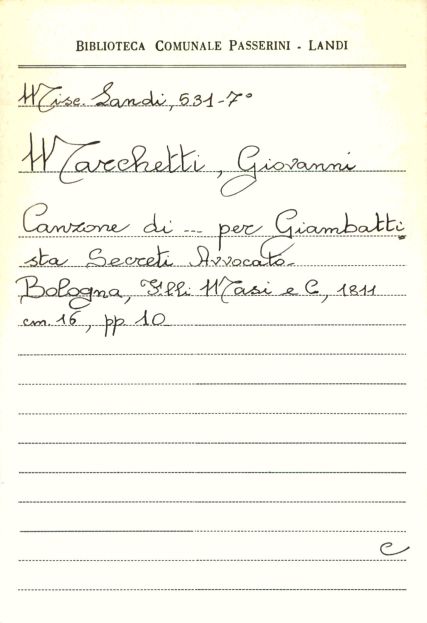 BIBLIOTECA COMUNALE PASSERINI - LANDI
Misc. Landi, 531-7°
Marchetti, Giovanni
Canzone di ... per Giambatti-
sta Secreti Avvocato.
Bologna, F.lli Masi e C, 1811
cm. 16, pp 10
C